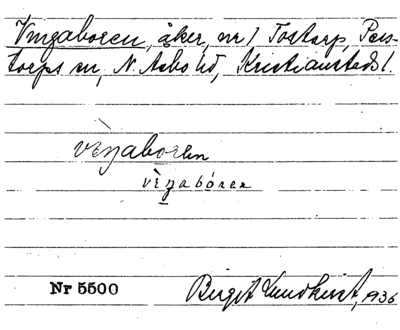 Vingaboren, åker, nr 1 Tostarp, Pers-
torps sn, N. Åsbo hd, Kristianstads l.
vèŋaboren
vèŋabóren
Nr 5500
Birgit Lundkvist, 1936